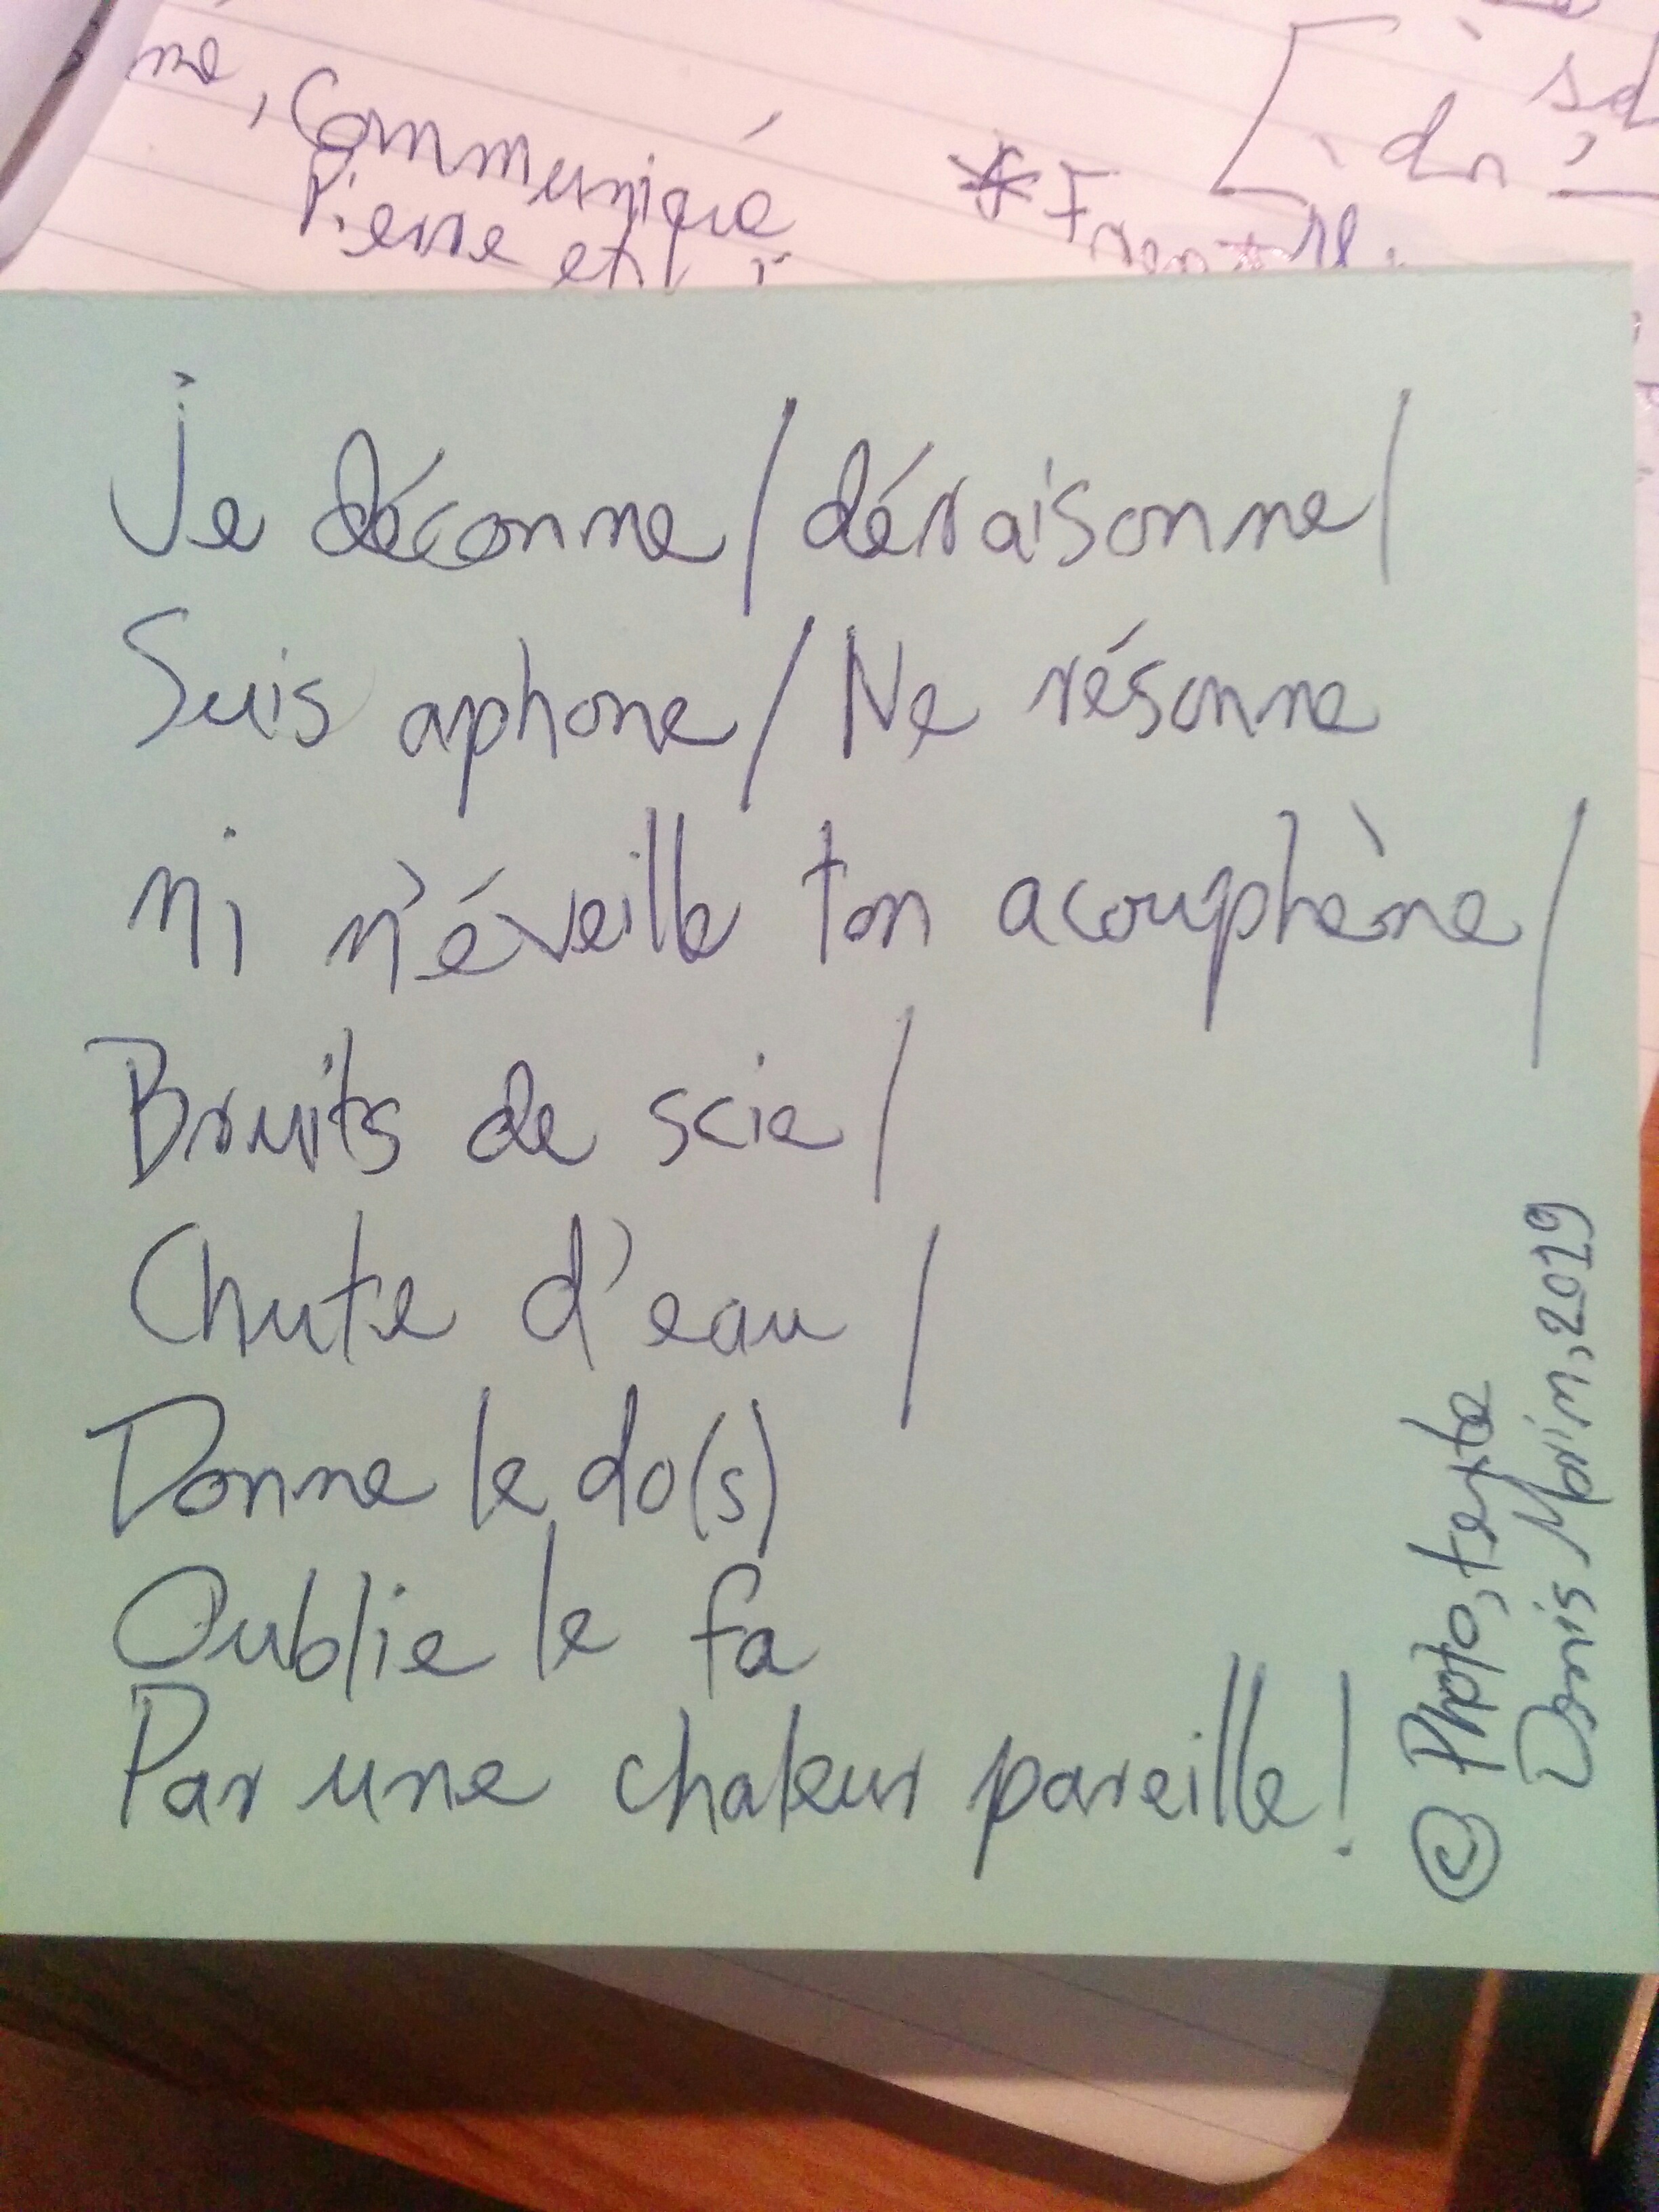 Communiqué
Pierre et
Je déconne/déraisonne/
Suis aphone/Ne résonne
ni n'éveille ton acouphène/
Bruits de scie/
Chute d'eau/
Donne le do(s)
Oublie le fa
Par une chaleur pareille!
© Photo, texte
Denis Morin, 2019